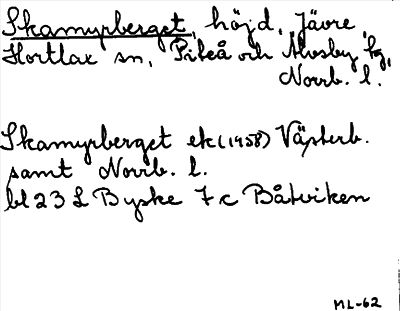 Skamyrberget, höjd, Jävre
Hortlax sn, Piteå och Älvsby kg,
Norrb. l.
Skamyrberget ek (1958) Västerb.
samt Norrb. l.
bl 23 L Byske 7 c Båtviken
ML-62